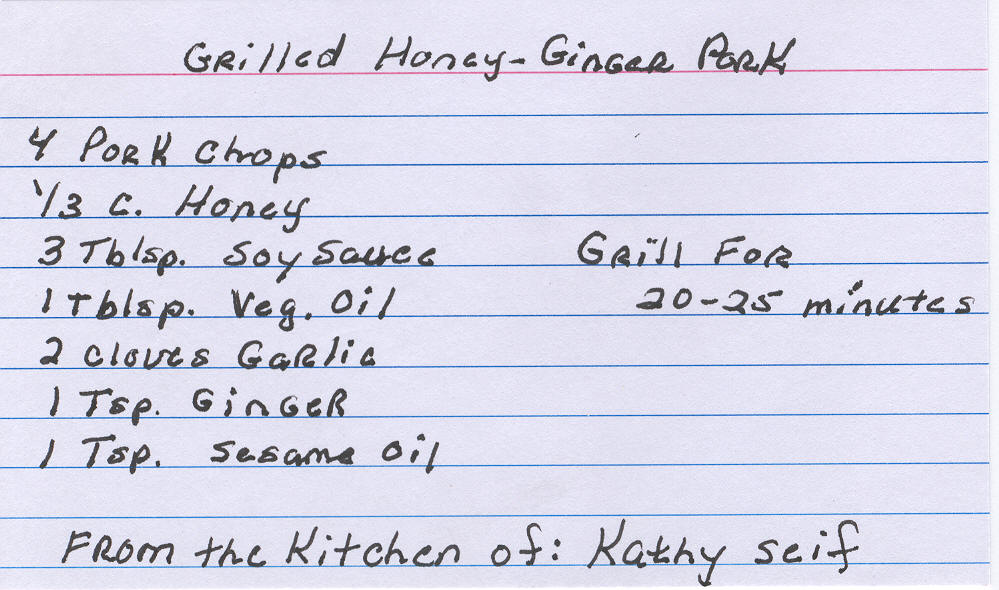 Grilled Honey-Ginger Pork
4 Pork Chops
1/3 C. Honey
3 Tblsp. Soy Sauce
1 Tblsp. Veg. Oil
2 cloves Garlic
1 Tsp. Ginger
1 Tsp. Sesame Oil
Grill For
20-25 minutes
From the Kitchen of: Kathy Seif